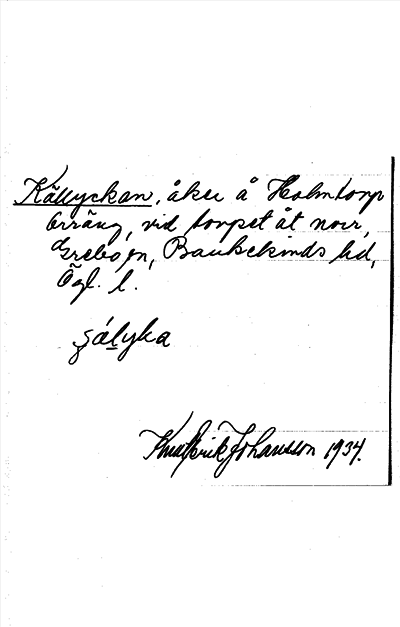 Källyckan, åker å Holmtorp
Örräng, vid torpet åt norr,
Grebo sn, Bankekinds hd,
Ögl. l.
Knut Erik Johansson 1934.